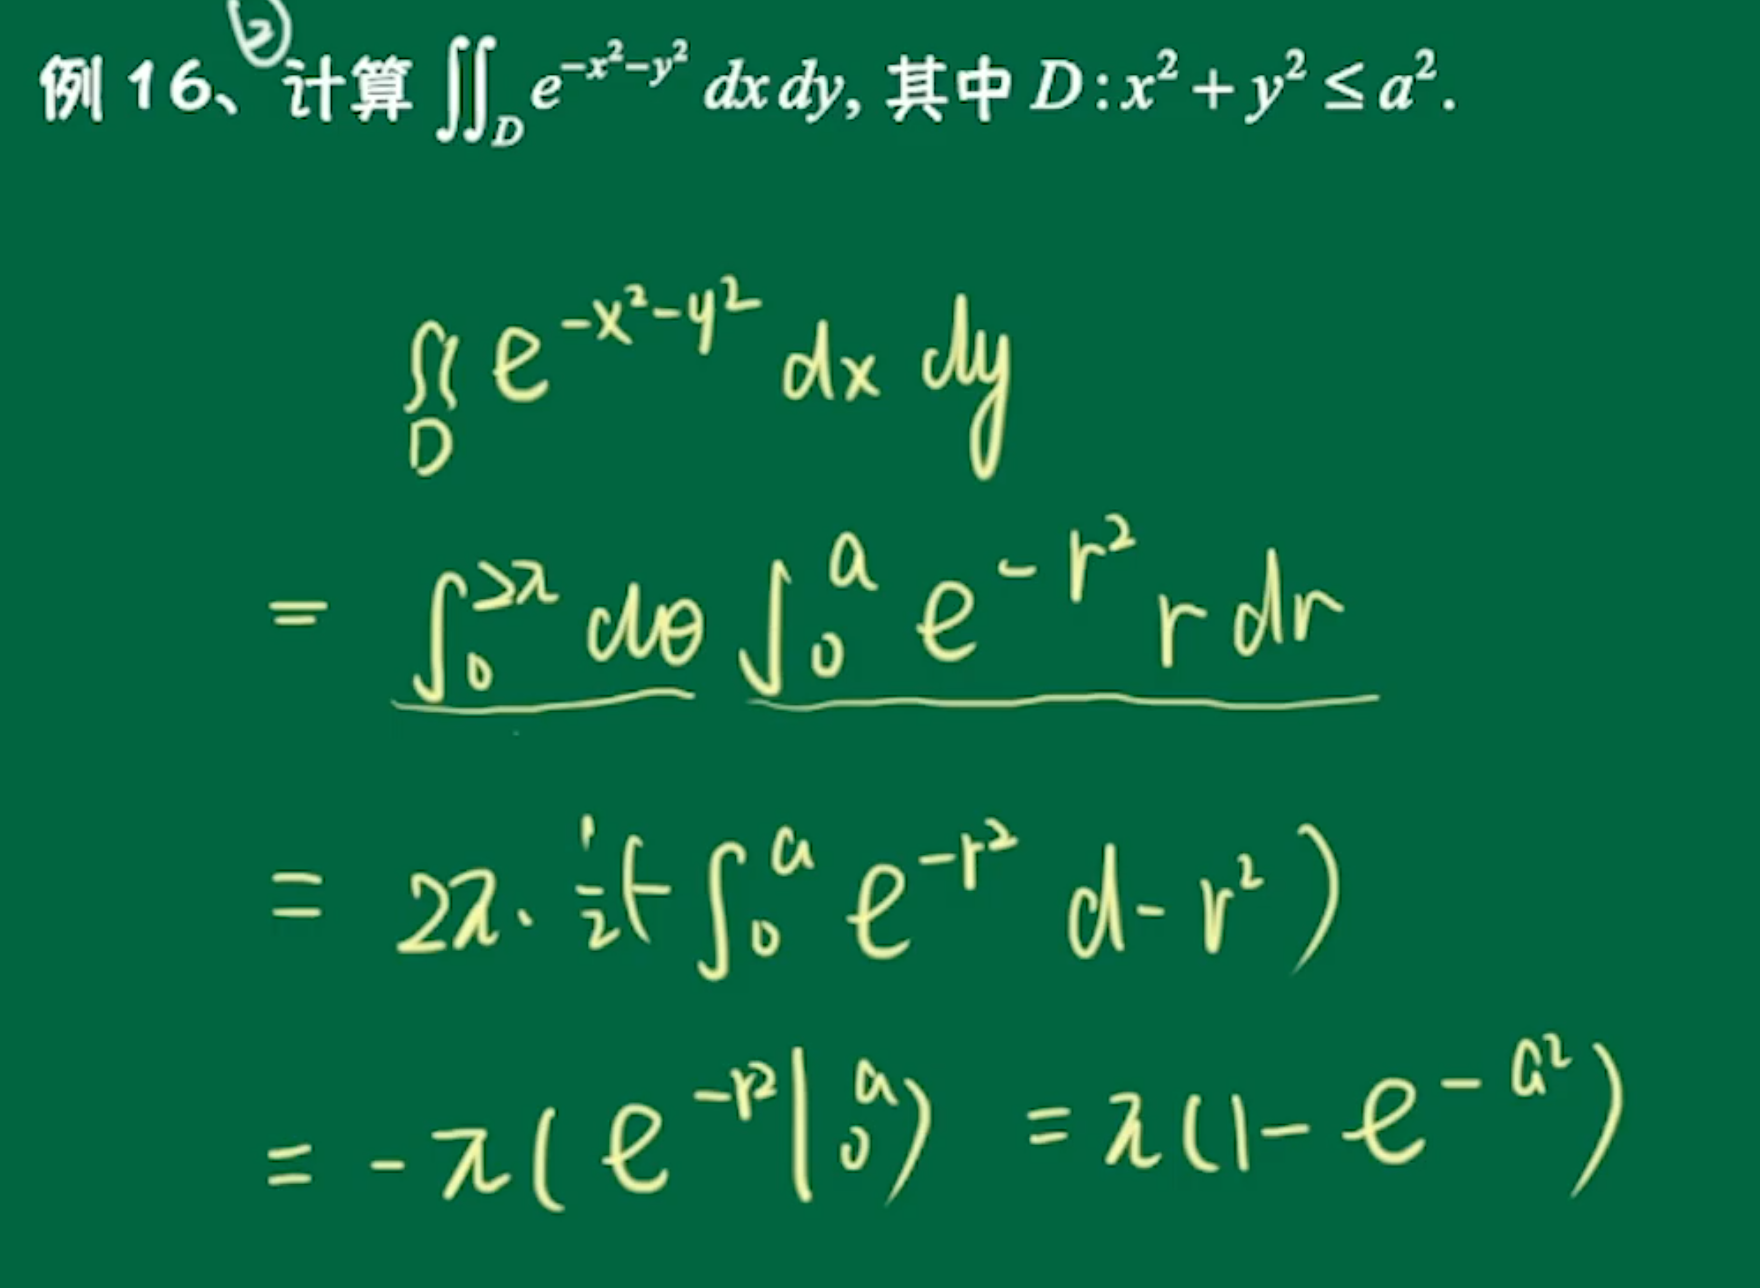 ②
例 16、计算 ∬_D e^{-x²-y²} dx dy, 其中 D: x² + y² ≤ a².
∬_D e^{-x²-y²} dx dy
= ∫_0^{2π} dθ ∫_0^a e^{-r²} r dr
= 2π · ½ (- ∫_0^a e^{-r²} d-r²)
= -π( e^{-r²} |_0^a ) = π(1- e^{-a²})